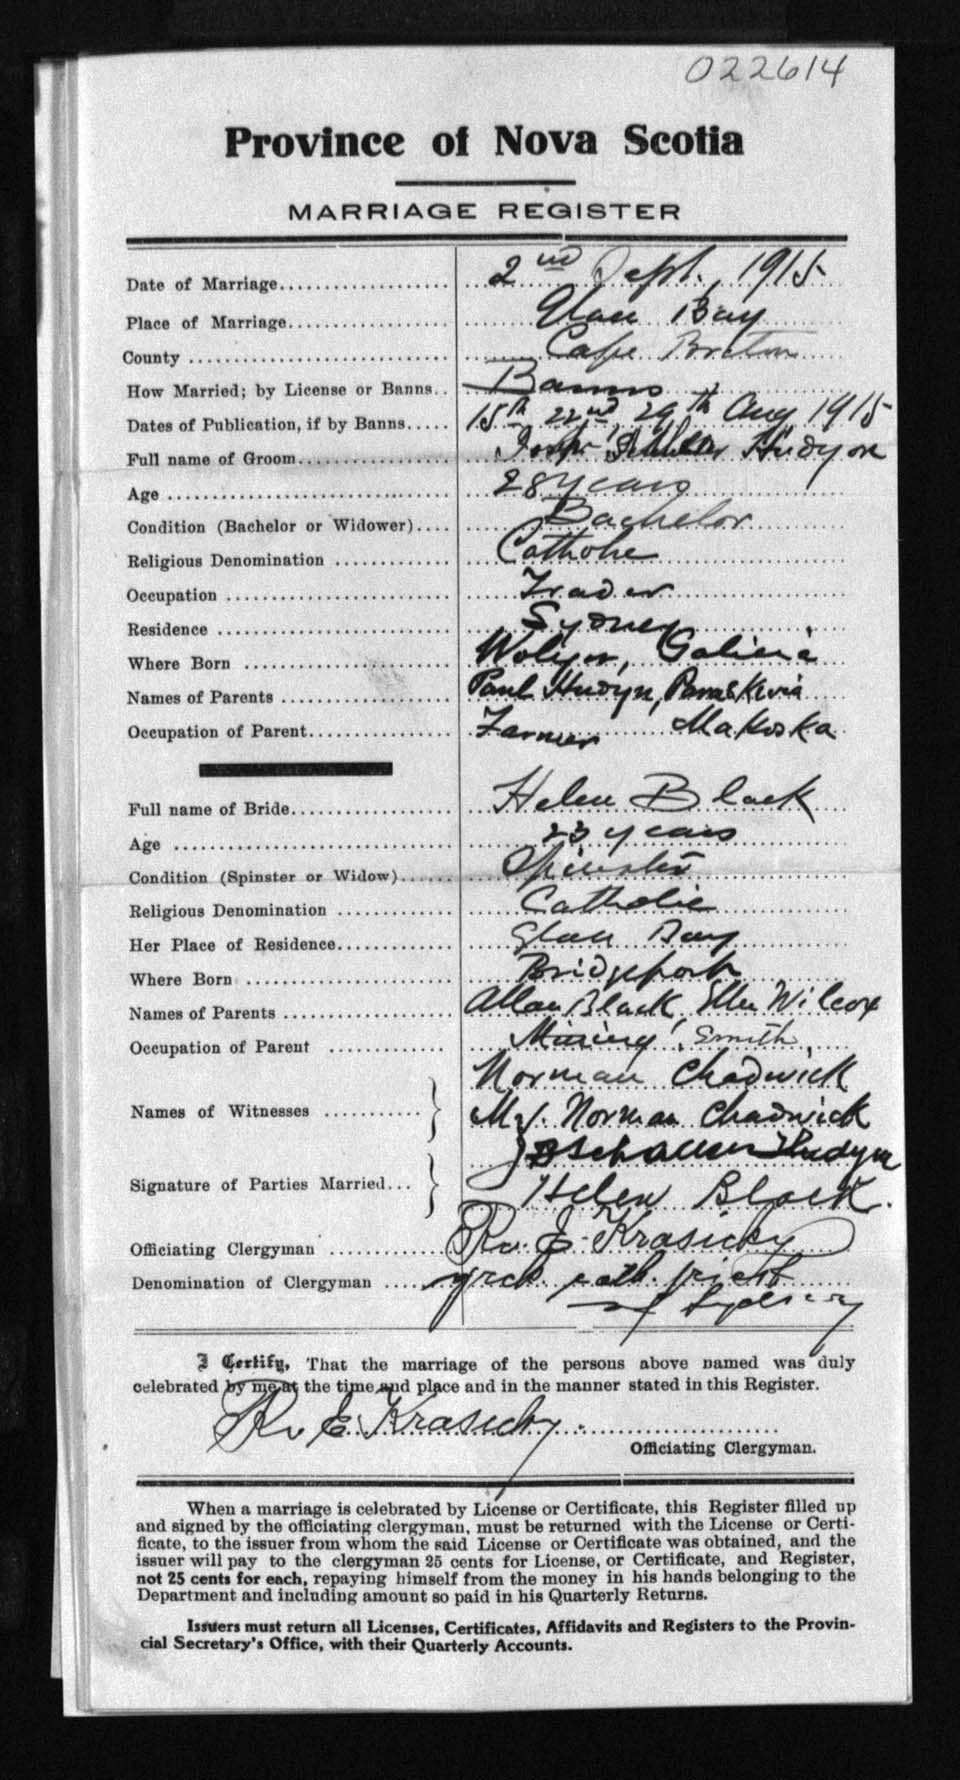 022614
Province of Nova Scotia
MARRIAGE REGISTER
Date of Marriage 2nd Sept., 1915
Place of Marriage Glace Bay
County Cape Breton
How Married; by License or Banns Banns
Dates of Publication, if by Banns 15th 22nd, 29th Aug 1915
Full name of Groom Hudyn
Age 28 years
Condition (Bachelor or Widower) Bachelor
Religious Denomination Catholic
Occupation Trader
Residence Sydney
Where Born Wolyn, Galicia
Names of Parents Paul Hudyn, Paraskivia
Occupation of Parent Farmer Makoska
Full name of Bride Helen Black
Age 23 years
Condition (Spinster or Widow) Spinster
Religious Denomination Catholic
Her Place of Residence Glace Bay
Where Born Bridgeport
Names of Parents Allan Black, Ellen Wilcox
Occupation of Parent Mining Smith
Norman Chadwick
Names of Witnesses
Mrs. Norman Chadwick
Hudyn
Signature of Parties Married
Helen Black.
Officiating Clergyman Rv. E. Krasicky
Denomination of Clergyman grek. cath. priest
of Sydney
I Certify, That the marriage of the persons above named was duly
celebrated by me at the time and place and in the manner stated in this Register.
Rv. E. Krasicky.
Officiating Clergyman.
When a marriage is celebrated by License or Certificate, this Register filled up
and signed by the officiating clergyman, must be returned with the License or Certi-
ficate, to the issuer from whom the said License or Certificate was obtained, and the
issuer will pay to the clergyman 25 cents for License, or Certificate, and Register,
not 25 cents for each, repaying himself from the money in his hands belonging to the
Department and including amount so paid in his Quarterly Returns.
Issuers must return all Licenses, Certificates, Affidavits and Registers to the Provin-
cial Secretary's Office, with their Quarterly Accounts.